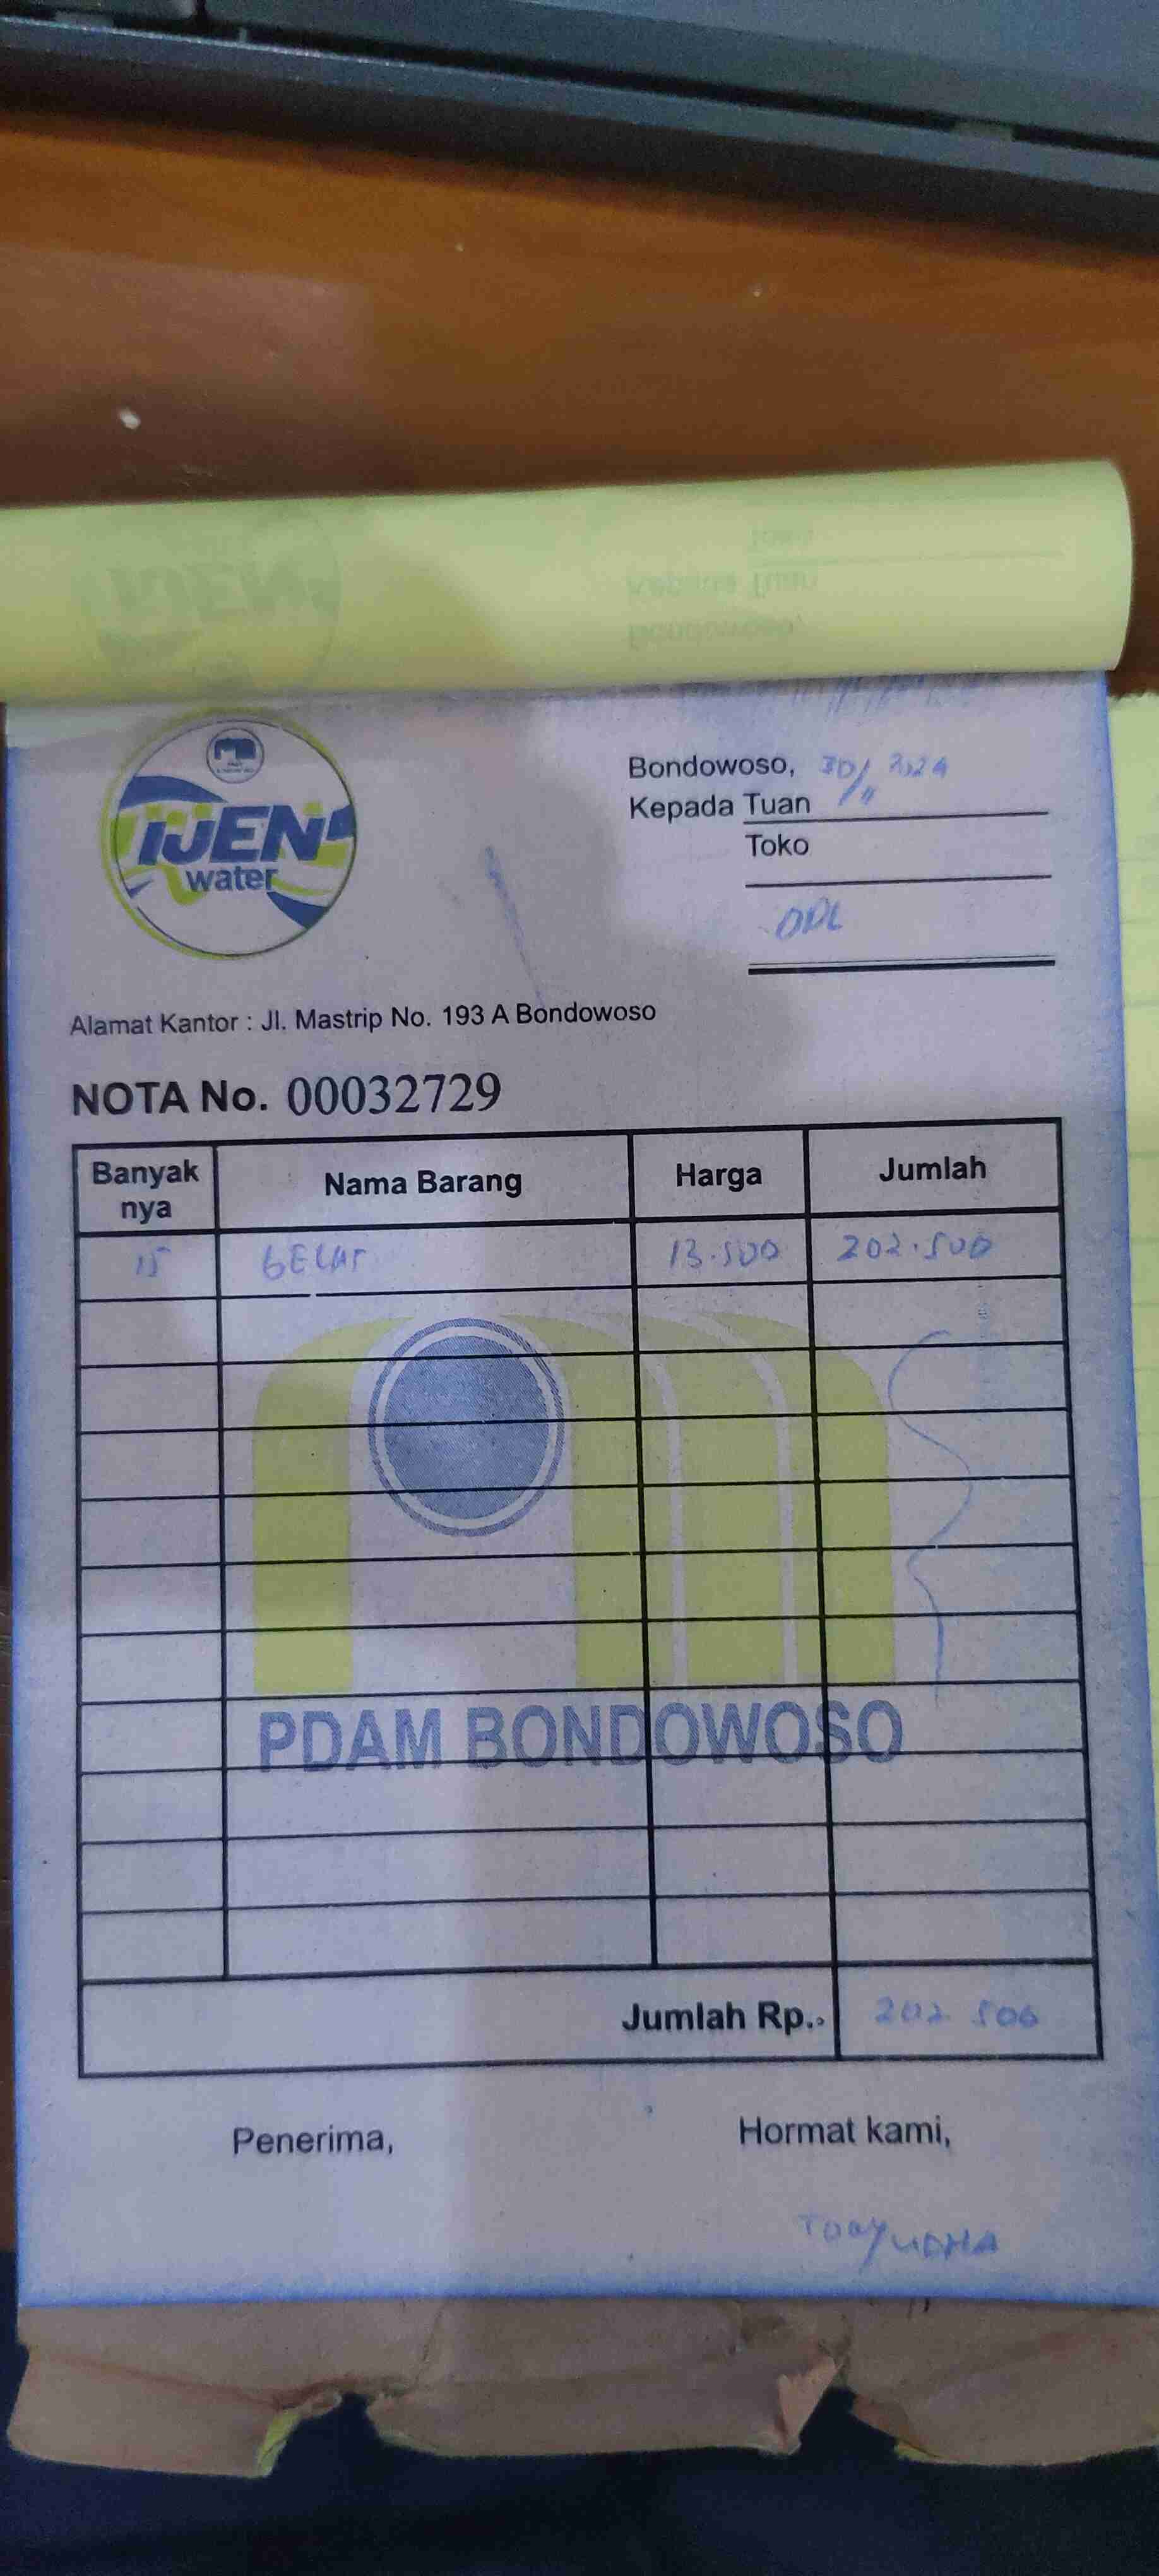 IJEN
water
Bondowoso, 30/11 2024
Kepada Tuan
Toko
Alamat Kantor : Jl. Mastrip No. 193 A Bondowoso
NOTA No. 00032729
Banyak nya Nama Barang Harga Jumlah
15 GELAS 13.500 202.500
PDAM BONDOWOSO
Jumlah Rp.. 202 500
Penerima, Hormat kami,